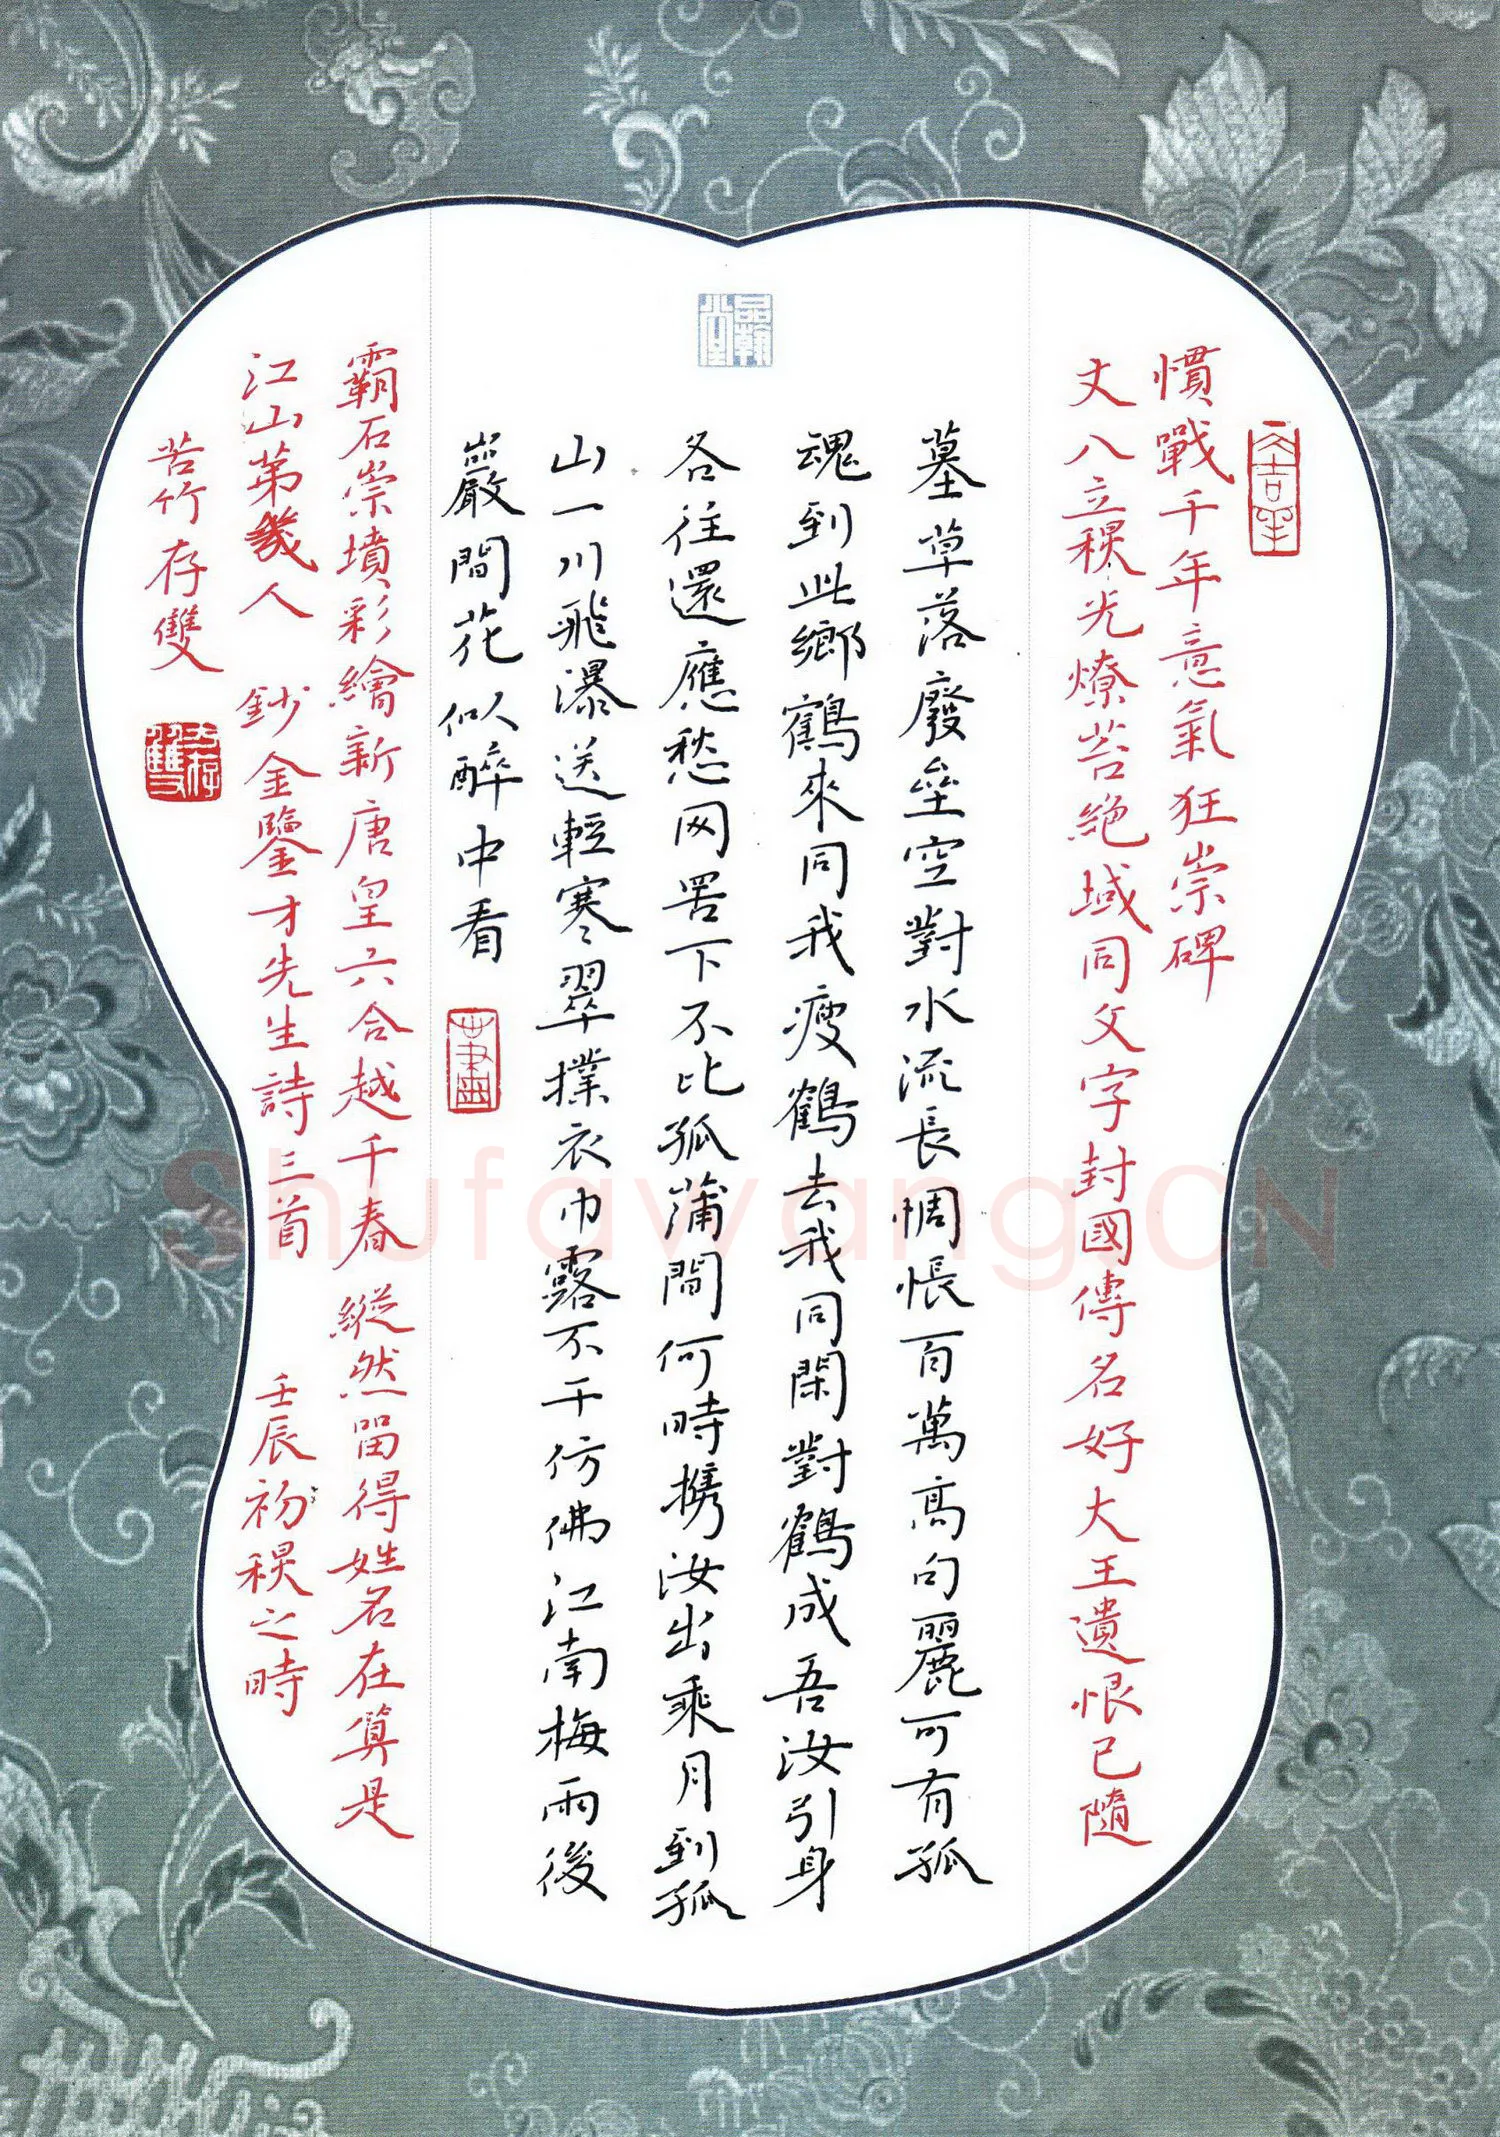 慣戰千年意氣狂崇碑
丈八立穆光燎苔絕域同文字封國傳名好大王遺恨已隨
墓草落廢壘空對水流長惆悵百萬高句麗可有孤
魂到此鄉鶴來同我瘦鶴去我同閑對鶴成吾汝引身
各往還應愁网罟下不比孤蒲間何時攜汝出乘月到孤
山一川飛瀑送輕寒翠撲衣巾露不干仿佛江南梅雨後
巖間花似醉中看
霸石崇墳彩繪新唐皇六合越千春縱然留得姓名在算是
江山第幾人 鈔金鑒才先生詩三首 壬辰初穆之時
苦竹存雙
品翰堂
大吉羊
存雙
Shufawang.CN